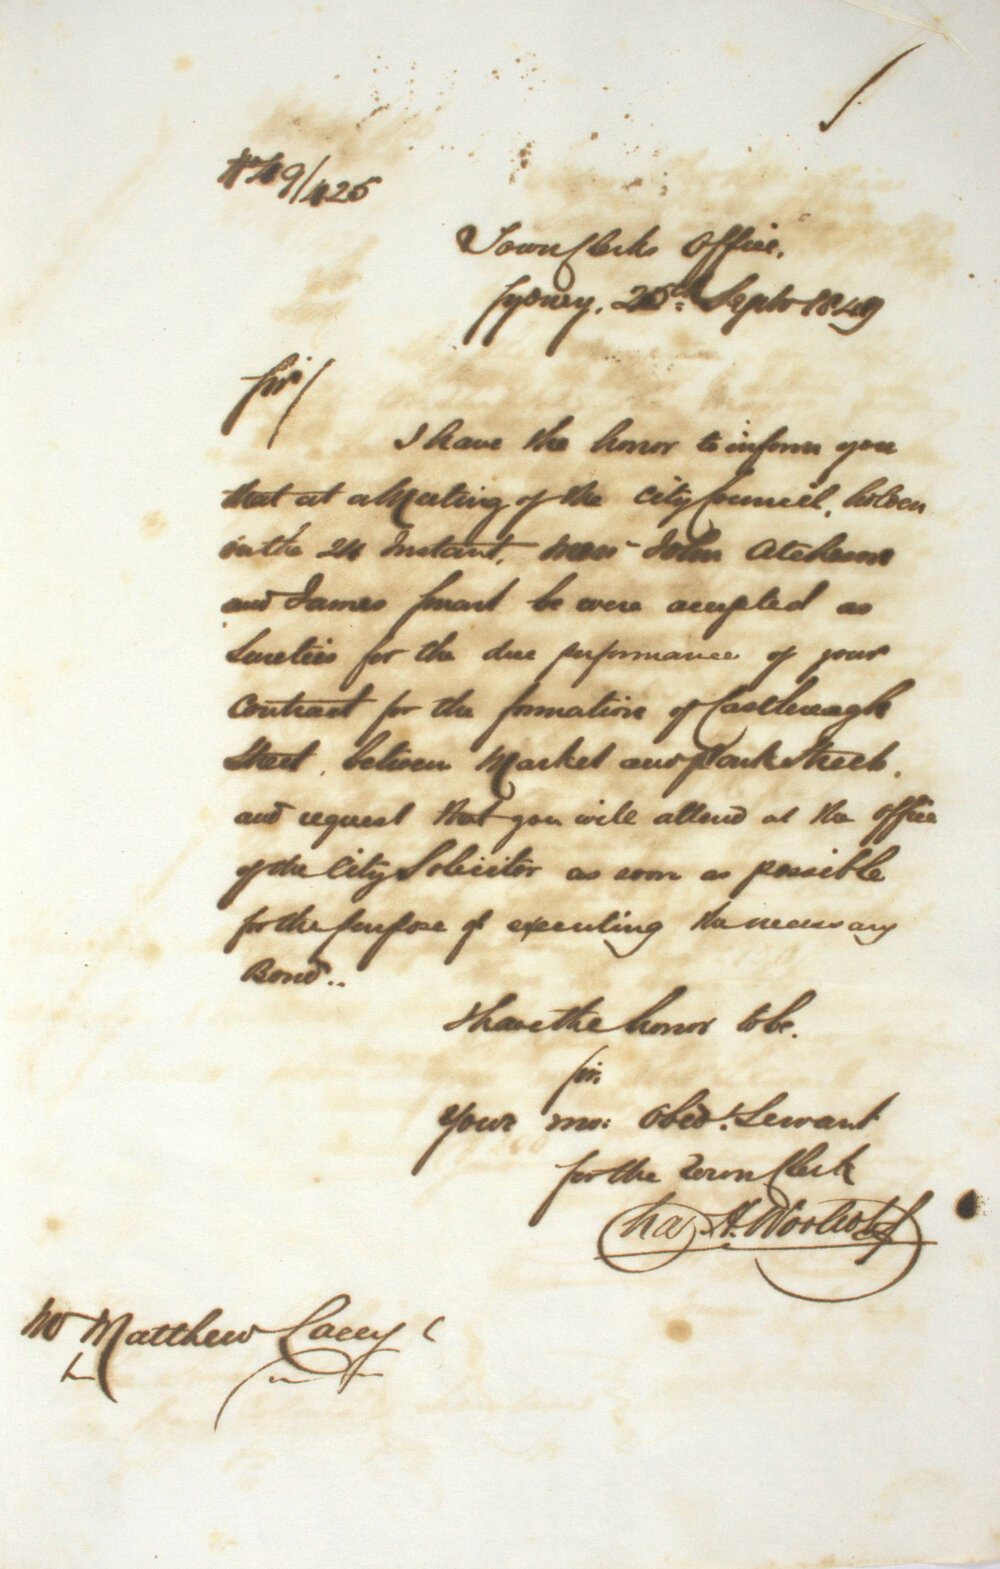 No 49/425
Town Clerks Office,
Sydney, 25th Septr 1849
Sir/
I have the honor to inform you
that at a Meeting of the City Council, holden
on the 24 Instant, Messrs John Atcheson
and James Smart be were accepted as
Sureties for the due performance of your
Contract for the formation of Castlereagh
Street, between Market and Park Streets,
and request that you will attend at the office
of the City Solicitor as soon as possible
for the purpose of executing the necessary
Bond..
I have the honor to be,
Sir,
Your mo: Obedt. Servant
for the Town Clerk
Chas H. Woolcott
Mr Matthew Lacey